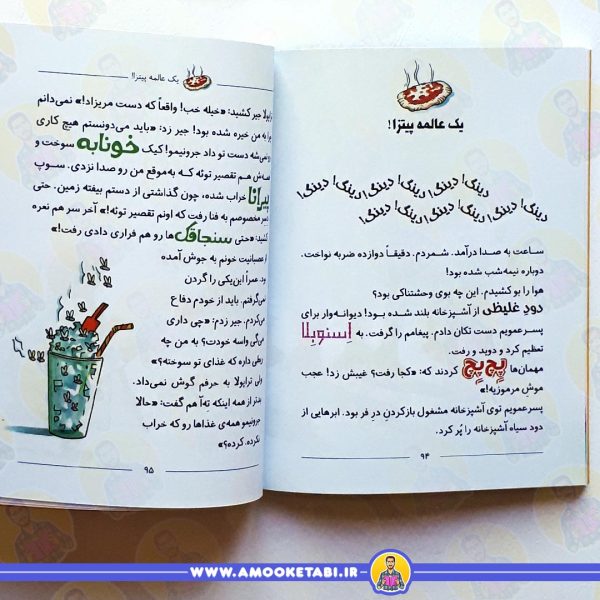 یک عالمه پیتزا!
دینگ! دینگ! دینگ! دینگ! دینگ! دینگ!
دینگ! دینگ! دینگ! دینگ! دینگ!
ساعت به صدا درآمد. شمردم. دقیقاً دوازده ضربه نواخت.
دوباره نیمه‌شب شده بود!
هوا را بو کشیدم. این چه بوی وحشتناکی بود؟
دود غلیظی از آشپزخانه بلند شده بود! دیوانه‌وار برای
پسرعمویم دست تکان دادم. پیغامم را گرفت. به اسنوبلا
تعظیم کرد و دوید و رفت.
مهمان‌ها پچ‌پچ کردند که: «کجا رفت؟ غیبش زد! عجب
موش مرموزیه!»
پسرعمویم توی آشپزخانه مشغول بازکردن در فر بود. ابرهایی از
دود سیاه آشپزخانه را پُر کرد.
۹۴
یک عالمه پیتزا!
ترابولا جیر کشید: «خیله خب! واقعاً که دست مریزاد!» نمی‌دانم
چرا به من خیره شده بود! جیر زد: «باید می‌دونستم هیچ کاری
رو نمی‌شه دست تو داد جرونیمو! کیک خونابه سوخت و
هم تقصیر توئه که به‌موقع من رو صدا نزدی. سوپ
پیرانا خراب شده، چون گذاشتی از دستم بیفته زمین. حتی
مخصوصم به فنا رفت که اونم تقصیر توئه!» آخر سر هم نعره
کشید: «حتی سنجاقک‌ها رو هم فراری دادی رفت!»
از عصبانیت خونم به جوش آمده
بود. عمراً این‌یکی را گردن
نمی‌گرفتم. باید از خودم دفاع
می‌کردم. جیر زدم: «چی داری
می‌گی واسه خودت؟ به من چه
ربطی داره که غذای تو سوخته؟»
ولی ترابولا به حرفم گوش نمی‌داد.
بدتر از همه اینکه ته‌آ هم گفت: «حالا
جرونیمو همه‌ی غذاها رو که خراب
نکرده. کرده؟»
۹۵
WWW.AMOOKETABI.IR